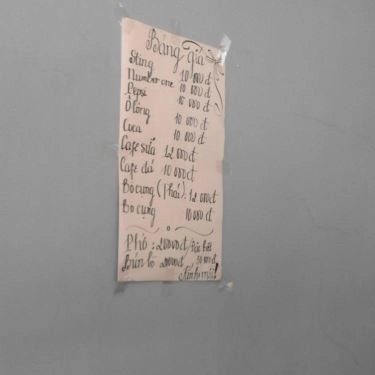 Bảng giá
Sting 10 000đ
Number one 10 000đ
Pepsi 10 000đ
Ô lông 10 000đ
Coca 10 000đ
Cafe sữa 12 000đ
Cafe đá 10 000đ
Bò cụng (Thái): 12 000đ
Bò cụng 10 000đ
Phở : 20000đ/ Đặc biệt
Bún bò 20000đ 30 000đ
Kính mời!